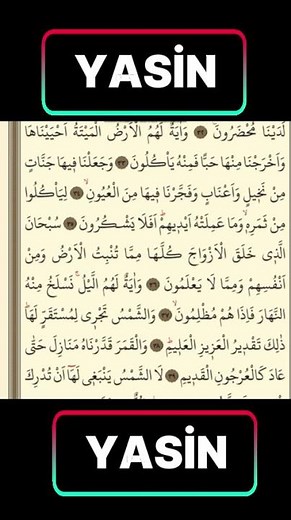 YASİN
لَدَيْنَا مُحْضَرُونَ ﴿٣٢﴾ وَاٰيَةٌ لَهُمُ الْاَرْضُ الْمَيْتَةُ اَحْيَيْنَاهَا
وَاَخْرَجْنَا مِنْهَا حَبًّا فَمِنْهُ يَأْكُلُونَ ﴿٣٣﴾ وَجَعَلْنَا فِيهَا جَنَّاتٍ
مِنْ نَخِيلٍ وَاَعْنَابٍ وَفَجَّرْنَا فِيهَا مِنَ الْعُيُونِۙ ﴿٣٤﴾ لِيَأْكُلُوا
مِنْ ثَمَرِه۪ۙ وَمَا عَمِلَتْهُ اَيْد۪يهِمْۜ اَفَلَا يَشْكُرُونَ ﴿٣٥﴾ سُبْحَانَ
الَّذ۪ي خَلَقَ الْاَزْوَاجَ كُلَّهَا مِمَّا تُنْبِتُ الْاَرْضُ وَمِنْ
اَنْفُسِهِمْ وَمِمَّا لَا يَعْلَمُونَ ﴿٣٦﴾ وَاٰيَةٌ لَهُمُ الَّيْلُۚ نَسْلَخُ مِنْهُ
النَّهَارَ فَاِذَا هُمْ مُظْلِمُونَۙ ﴿٣٧﴾ وَالشَّمْسُ تَجْر۪ي لِمُسْتَقَرٍّ لَهَاۜ
ذٰلِكَ تَقْد۪يرُ الْعَز۪يزِ الْعَل۪يمِۜ ﴿٣٨﴾ وَالْقَمَرَ قَدَّرْنَاهُ مَنَازِلَ حَتّٰى
عَادَ كَالْعُرْجُونِ الْقَد۪يمِ ﴿٣٩﴾ لَا الشَّمْسُ يَنْبَغ۪ي لَهَٓا اَنْ تُدْرِكَ
YASİN